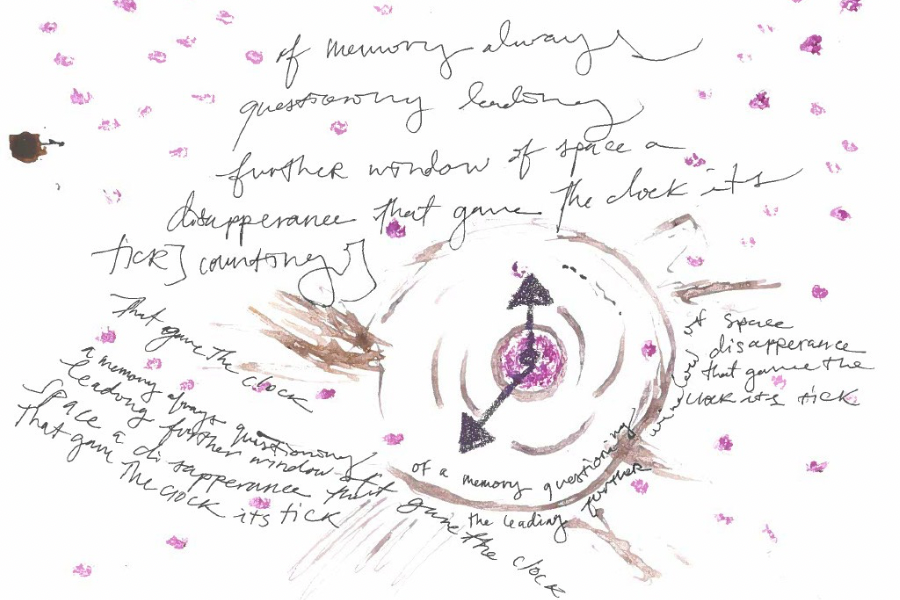 of memory always
questioning leading
further window of space a
disapperance that gave the clock its
tick] counting]
That gave the clock
a memory always questioning
leading further window
space a disapperance that gave the clock
that gave the clock its tick
of a memory questioning
the leading further window
of space
disapperance
that gave the
clock its tick